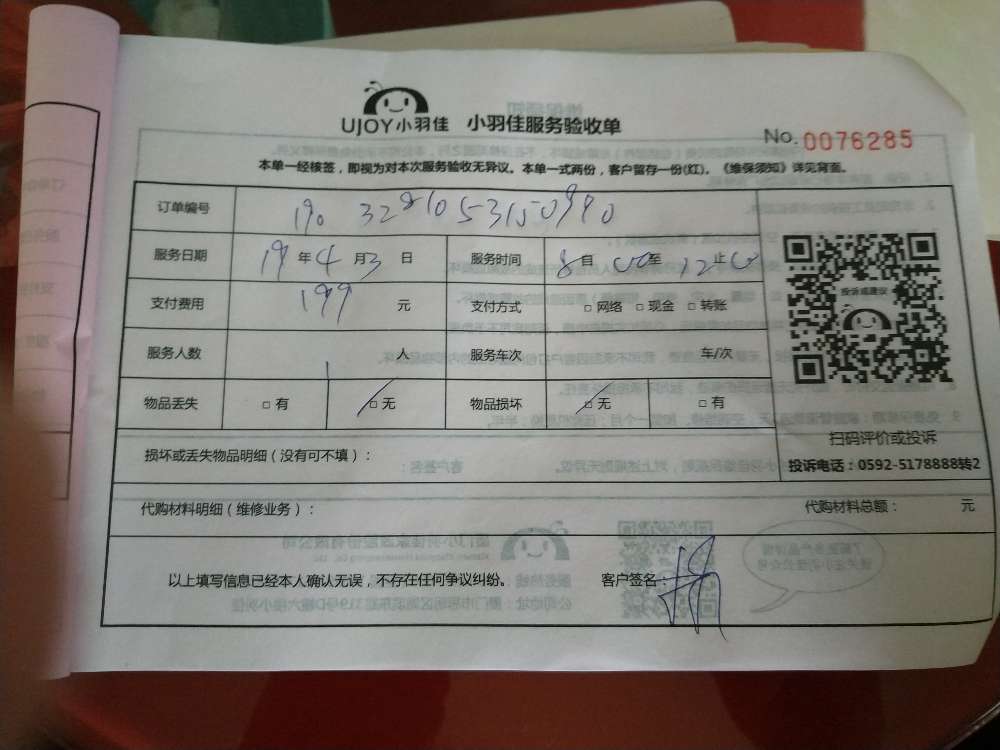 UJOY小羽佳 小羽佳服务验收单
No. 0076285
本单一经核签，即视为对本次服务验收无异议。本单一式两份，客户留存一份(红)。《维保须知》详见背面。
订单编号
服务日期 19 年 4 月 3 日 服务时间 8 自 00 至 12 止 00
支付费用 199 元 支付方式 □ 网络 □ 现金 □ 转账
投诉或建议
服务人数 1 人 服务车次 车/次
物品丢失 □ 有 □ 无 物品损坏 □ 无 □ 有
扫码评价或投诉
损坏或丢失物品明细（没有可不填）：
投诉电话：0592-5178888转2
代购材料明细（维修业务）： 代购材料总额： 元
以上填写信息已经本人确认无误，不存在任何争议纠纷。 客户签名：